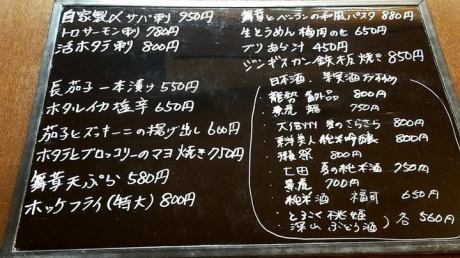 自家製〆サバ刺 950円
トロサーモン刺 780円
活ホタテ刺 800円
長茄子一本漬け 550円
ホタルイカ塩辛 650円
茄子とズッキーニの揚げ出し 600円
ホタテとブロッコリーのマヨ焼き 750円
舞茸天ぷら 580円
ホッケフライ(特大) 800円
舞茸とベーコンの和風パスタ 880円
生とうめん 梅肉のせ 650円
ブリあら汁 450円
ジンギスカン鉄板焼き 850円
日本酒、果実酒
800円
750円
大信州 夏のさらさら 800円
東洋美人 純米吟醸 800円
獺祭 800円
七田 夏の純米酒 750円
700円
純米酒 650円
とろこく桃姫
深山ぶどう酒 各560円